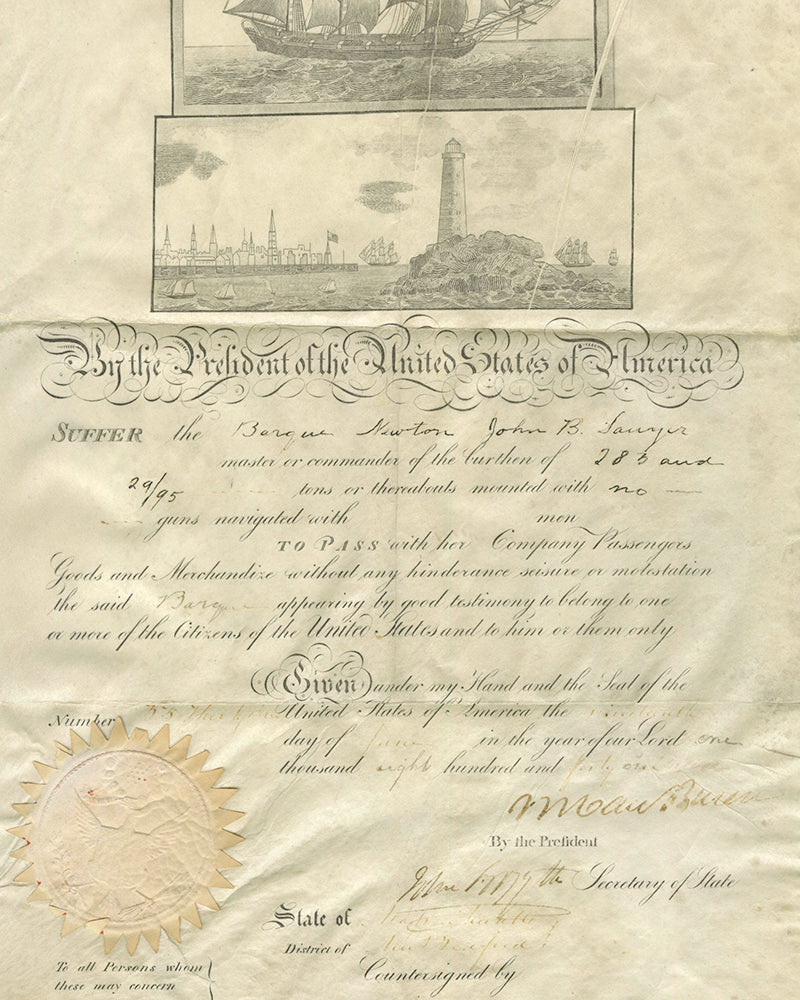 By the President of the United States of America
SUFFER the Barque Newton John B. Sawyer
master or commander of the burthen of 283 and
29/95 tons or thereabouts mounted with no
guns navigated with men
TO PASS with her Company Passengers
Goods and Merchandize without any hinderance seisure or molestation
the said Barque appearing by good testimony to belong to one
or more of the Citizens of the United States and to him or them only
Given under my Hand and the Seal of the
Number United States of America the
day of June in the year of our Lord one
thousand eight hundred and forty one
M Van Buren
By the President
John Forsyth Secretary of State
State of
District of New Bedford
To all Persons whom
these may concern
Countersigned by